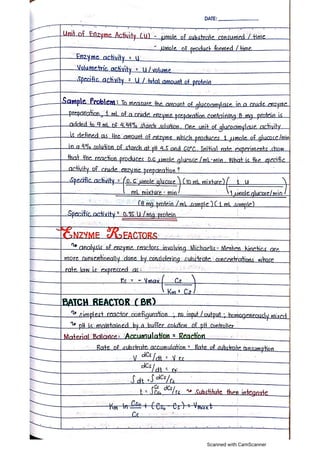 DATE:
Unit of Enzyme Activity (U) - µmole of substrate consumed / time
- µmole of product formed / time
Enzyme activity = U
Volumetric activity = U / volume
Specific activity = U / total amount of protein
Sample Problem: To measure the amount of glucoamylase in a crude enzyme
preparation, 1 mL of a crude enzyme preparation containing 8 mg protein is
added to 9 mL of 4.44% starch solution. One unit of glucoamylase activity
is defined as the amount of enzyme which produces 1 µmole of glucose/min
in a 4% solution of starch at pH 4.5 and 60°C. Initial rate experiments show
that the reaction produces 0.6 µmole glucose/mL-min. What is the specific
activity of crude enzyme preparation?
Specific activity = (0.6 µmole glucose) (10 mL mixture) ( 1 U )
mL mixture · min 1 µmole glucose/min
(8 mg protein / mL sample)(1 mL sample)
Specific activity = 0.75 U/mg protein
ENZYME REACTORS
analysis of enzyme reactors involving Michaelis-Menten kinetics are
more conventionally done by considering substrate concentrations whose
rate law is expressed as:
rs = - Vmax ( Cs )
Km + Cs
BATCH REACTOR (BR)
simplest reactor configuration ; no input/output ; homogeneously mixed
pH is maintained by a buffer solution of pH controller
Material Balance: Accumulation = Reaction
Rate of substrate accumulation = Rate of substrate consumption
V dCs/dt = V rs
dCs/dt = rs
∫dt = ∫dCs/rs
t = ∫ dCs/rs Substitute then integrate
Km ln Cso + (Cso - Cs) = Vmax t
Cs
Scanned with CamScanner